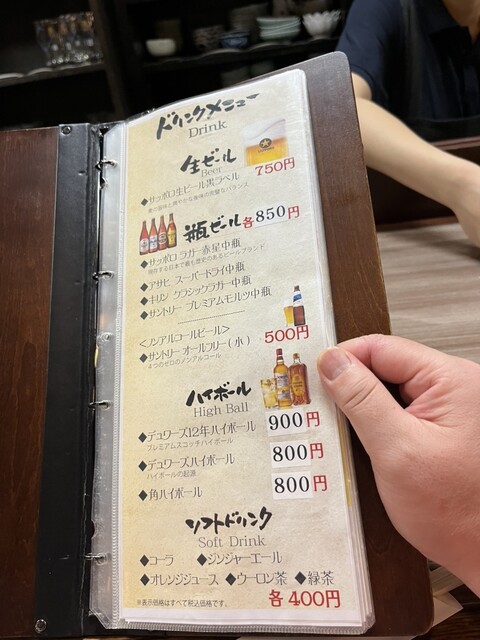 ドリンクメニュー
Drink
生ビール
Beer
750円
◆サッポロ生ビール黒ラベル
麦の旨味と爽やかな後味の完璧なバランス
瓶ビール各850円
◆サッポロ ラガー赤星中瓶
現存する日本で最も歴史のあるビールブランド
◆アサヒ スーパードライ中瓶
◆キリン クラシックラガー中瓶
◆サントリー プレミアムモルツ中瓶
<ノンアルコールビール>
500円
◆サントリー オールフリー(小)
4つのゼロのノンアルコール
ハイボール
High Ball
◆デュワーズ12年ハイボール 900円
プレミアムスコッチハイボール
◆デュワーズハイボール 800円
ハイボールの起源
◆角ハイボール 800円
ソフトドリンク
Soft Drink
◆コーラ ◆ジンジャーエール
◆オレンジジュース ◆ウーロン茶 ◆緑茶
各400円
※表示価格はすべて税込価格です。